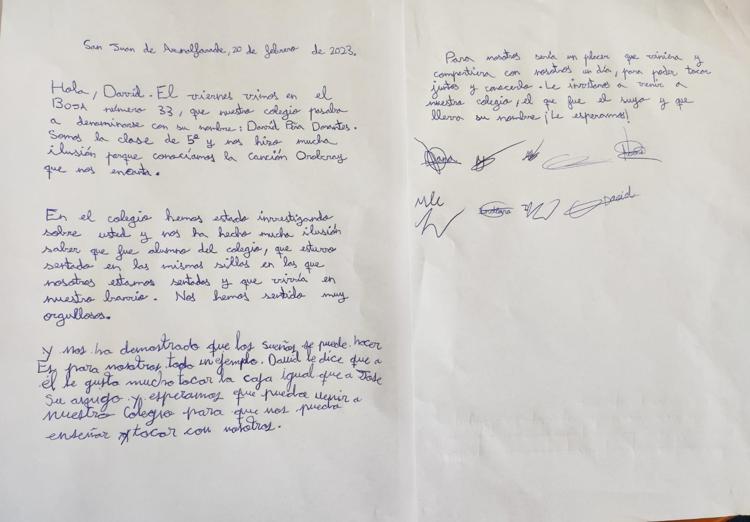 San Juan de Aznalfarache, 20 de febrero de 2023.
Hola, David. El viernes vimos en el
BOJA número 33, que nuestro colegio pasaba
a denominarse con su nombre: David Peña Dorantes.
Somos la clase de 5º y nos hizo mucha
ilusión porque conocíamos la canción Orobroy
que nos encanta.
En el colegio hemos estado investigando
sobre usted y nos ha hecho mucha ilusión
saber que fue alumno del colegio, que estuvo
sentado en las mismas sillas en las que
nosotros estamos sentados y que vivía en
nuestro barrio. Nos hemos sentido muy
orgullosos.
Y nos ha demostrado que los sueños se puede hacer
Es para nosotros todo un ejemplo. David le dice que a
él le gusta mucho tocar la caja igual que a Jose
Su amigo y esperamos que pueda venir a
nuestro Colegio para que nos pueda
enseñar y tocar con nosotros.
Para nosotros sería un placer que viniera y
compartiera con nosotros un día, para poder tocar
juntos y conocerlo. Le invitamos a venir a
nuestro colegio, el que fue el suyo y que
lleva su nombre ¡Le esperamos!
David